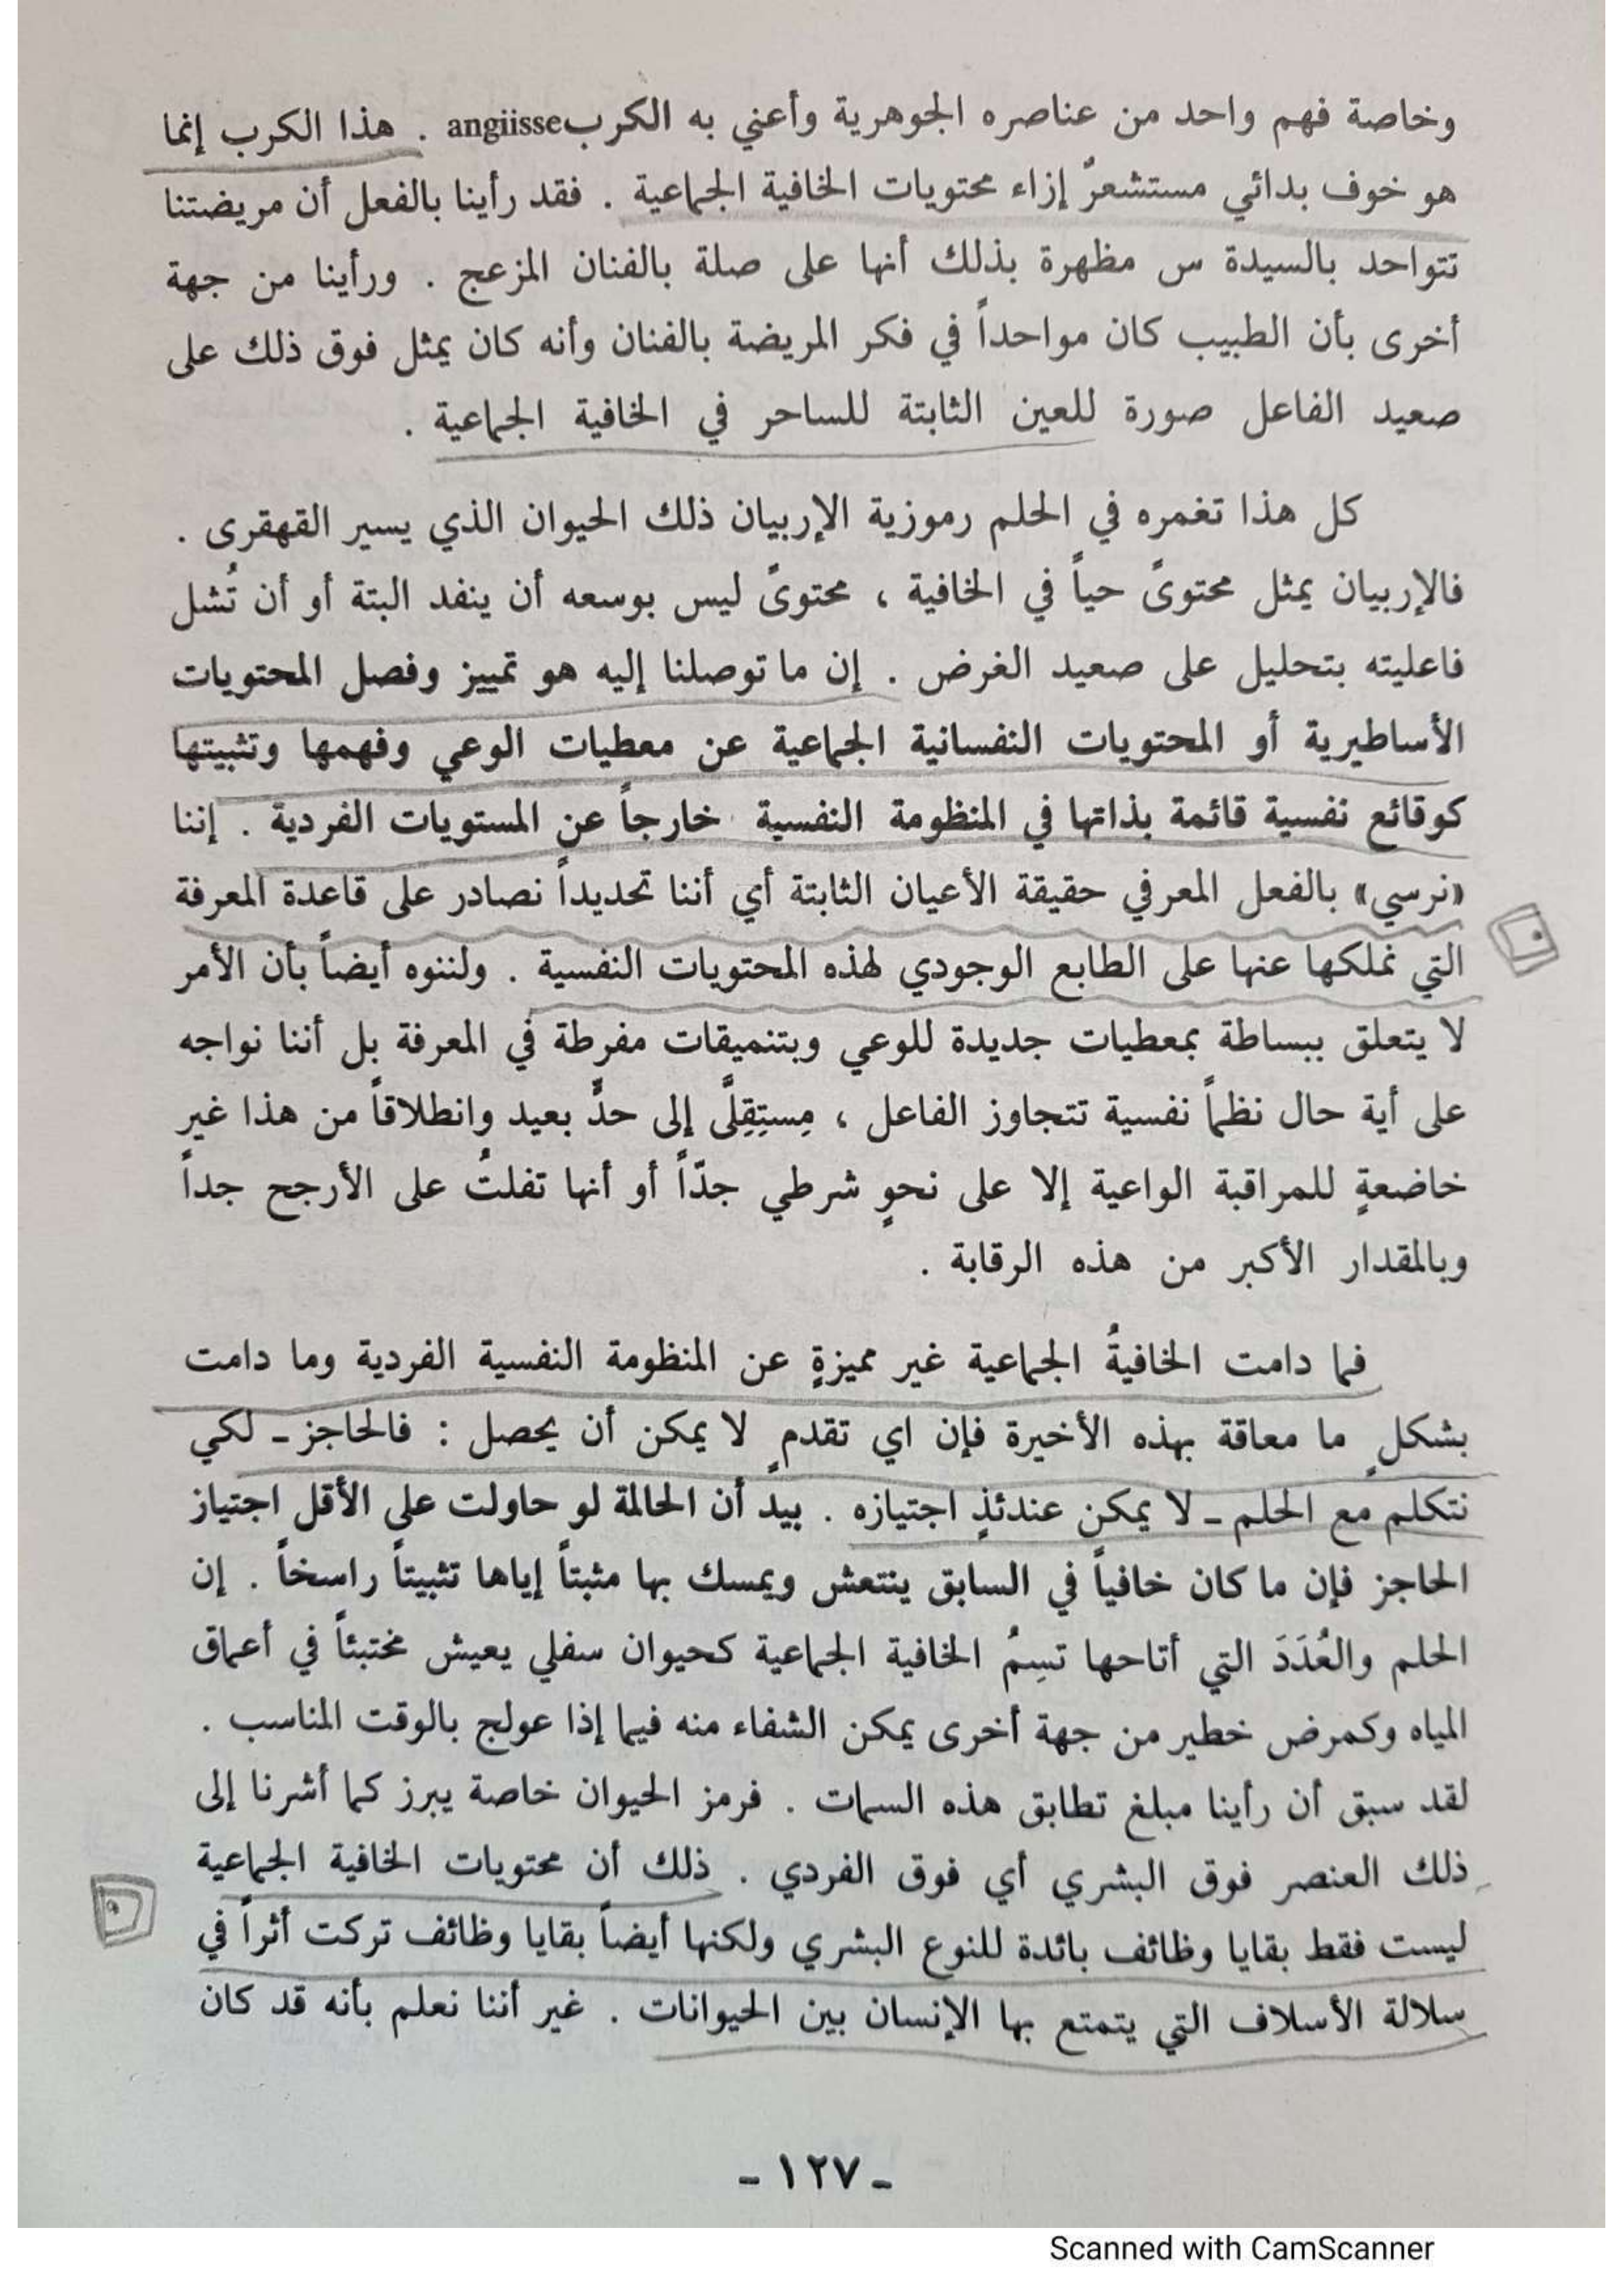 وخاصة فهم واحد من عناصره الجوهرية وأعني به الكرب angiisse . هذا الكرب إنما
هو خوف بدائي مستشعرٌ إزاء محتويات الخافية الجماعية . فقد رأينا بالفعل أن مريضتنا
تتواحد بالسيدة س مظهرة بذلك أنها على صلة بالفنان المزعج . ورأينا من جهة
أخرى بأن الطبيب كان مواحداً في فكر المريضة بالفنان وأنه كان يمثل فوق ذلك على
صعيد الفاعل صورة للعين الثابتة للساحر في الخافية الجماعية .
كل هذا تغمره في الحلم رموزية الإربيان ذلك الحيوان الذي يسير القهقرى .
فالإربيان يمثل محتوىً حياً في الخافية ، محتوىً ليس بوسعه أن ينفد البتة أو أن تُشل
فاعليته بتحليل على صعيد الغرض . إن ما توصلنا إليه هو تمييز وفصل المحتويات
الأساطيرية أو المحتويات النفسانية الجماعية عن معطيات الوعي وفهمها وتثبيتها
كوقائع نفسية قائمة بذاتها في المنظومة النفسية خارجاً عن المستويات الفردية . إننا
«نرسي» بالفعل المعرفي حقيقة الأعيان الثابتة أي أننا تحديداً نصادر على قاعدة المعرفة
التي نملكها عنها على الطابع الوجودي لهذه المحتويات النفسية . ولننوه أيضاً بأن الأمر
لا يتعلق ببساطة بمعطيات جديدة للوعي وبتنميقات مفرطة في المعرفة بل أننا نواجه
على أية حال نظماً نفسية تتجاوز الفاعل ، مِستِقِلَّى إلى حدٍّ بعيد وانطلاقاً من هذا غير
خاضعةٍ للمراقبة الواعية إلا على نحوٍ شرطي جدّاً أو أنها تفلتُ على الأرجح جداً
وبالمقدار الأكبر من هذه الرقابة .
فما دامت الخافيةُ الجماعية غير مميزةٍ عن المنظومة النفسية الفردية وما دامت
بشكلٍ ما معاقة بهذه الأخيرة فإن اي تقدمٍ لا يمكن أن يحصل : فالحاجز ـ لكي
نتكلم مع الحلم ـ لا يمكن عندئذٍ اجتيازه . بيدَ أن الحالمة لو حاولت على الأقل اجتياز
الحاجز فإن ما كان خافياً في السابق ينتعش ويمسك بها مثبتاً إياها تثبيتاً راسخاً . إن
الحلم والعُدَدَ التي أتاحها تسِمُ الخافية الجماعية كحيوان سفلي يعيش مختبئاً في أعماق
المياه وكمرض خطير من جهة أخرى يمكن الشفاء منه فيما إذا عولج بالوقت المناسب .
لقد سبق أن رأينا مبلغ تطابق هذه السمات . فرمز الحيوان خاصة يبرز كما أشرنا إلى
ذلك العنصر فوق البشري أي فوق الفردي . ذلك أن محتويات الخافية الجماعية
ليست فقط بقايا وظائف بائدة للنوع البشري ولكنها أيضاً بقايا وظائف تركت أثراً في
سلالة الأسلاف التي يتمتع بها الإنسان بين الحيوانات . غير أننا نعلم بأنه قد كان
ـ ١٢٧ ـ
Scanned with CamScanner